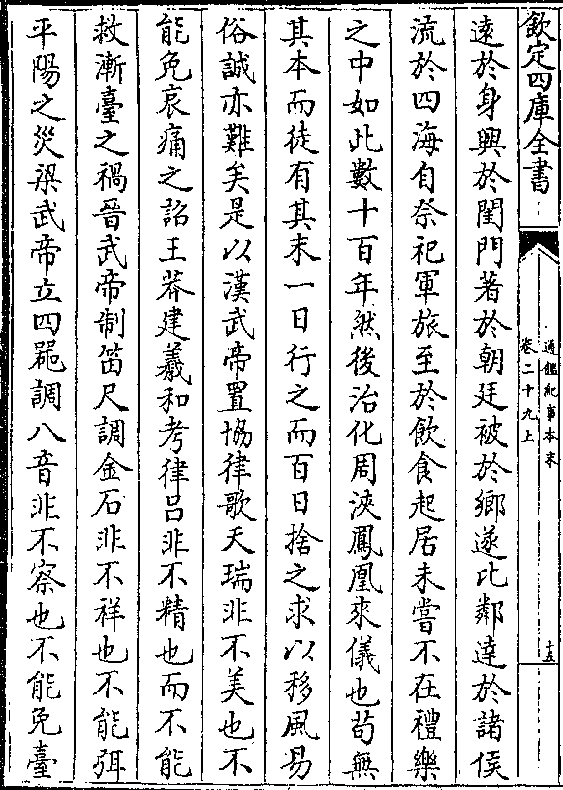 欽定四庫全書
通鑑紀事本末
卷二十九上
十五
遠於身興於閨門著於朝廷被於鄉遂比鄰達於諸侯
流於四海自祭祀軍旅至於飲食起居未嘗不在禮樂
之中如此數十百年然後治化周浹鳳凰來儀也茍無
其本而徒有其末一日行之而百日捨之求以移風易
俗誠亦難矣是以漢武帝置協律歌天瑞非不美也不
能免哀痛之詔王莽建羲和考律吕非不精也而不能
救漸臺之禍晉武帝制笛尺調金石非不祥也不能弭
平陽之災梁武帝立四噐調八音非不察也不能免臺